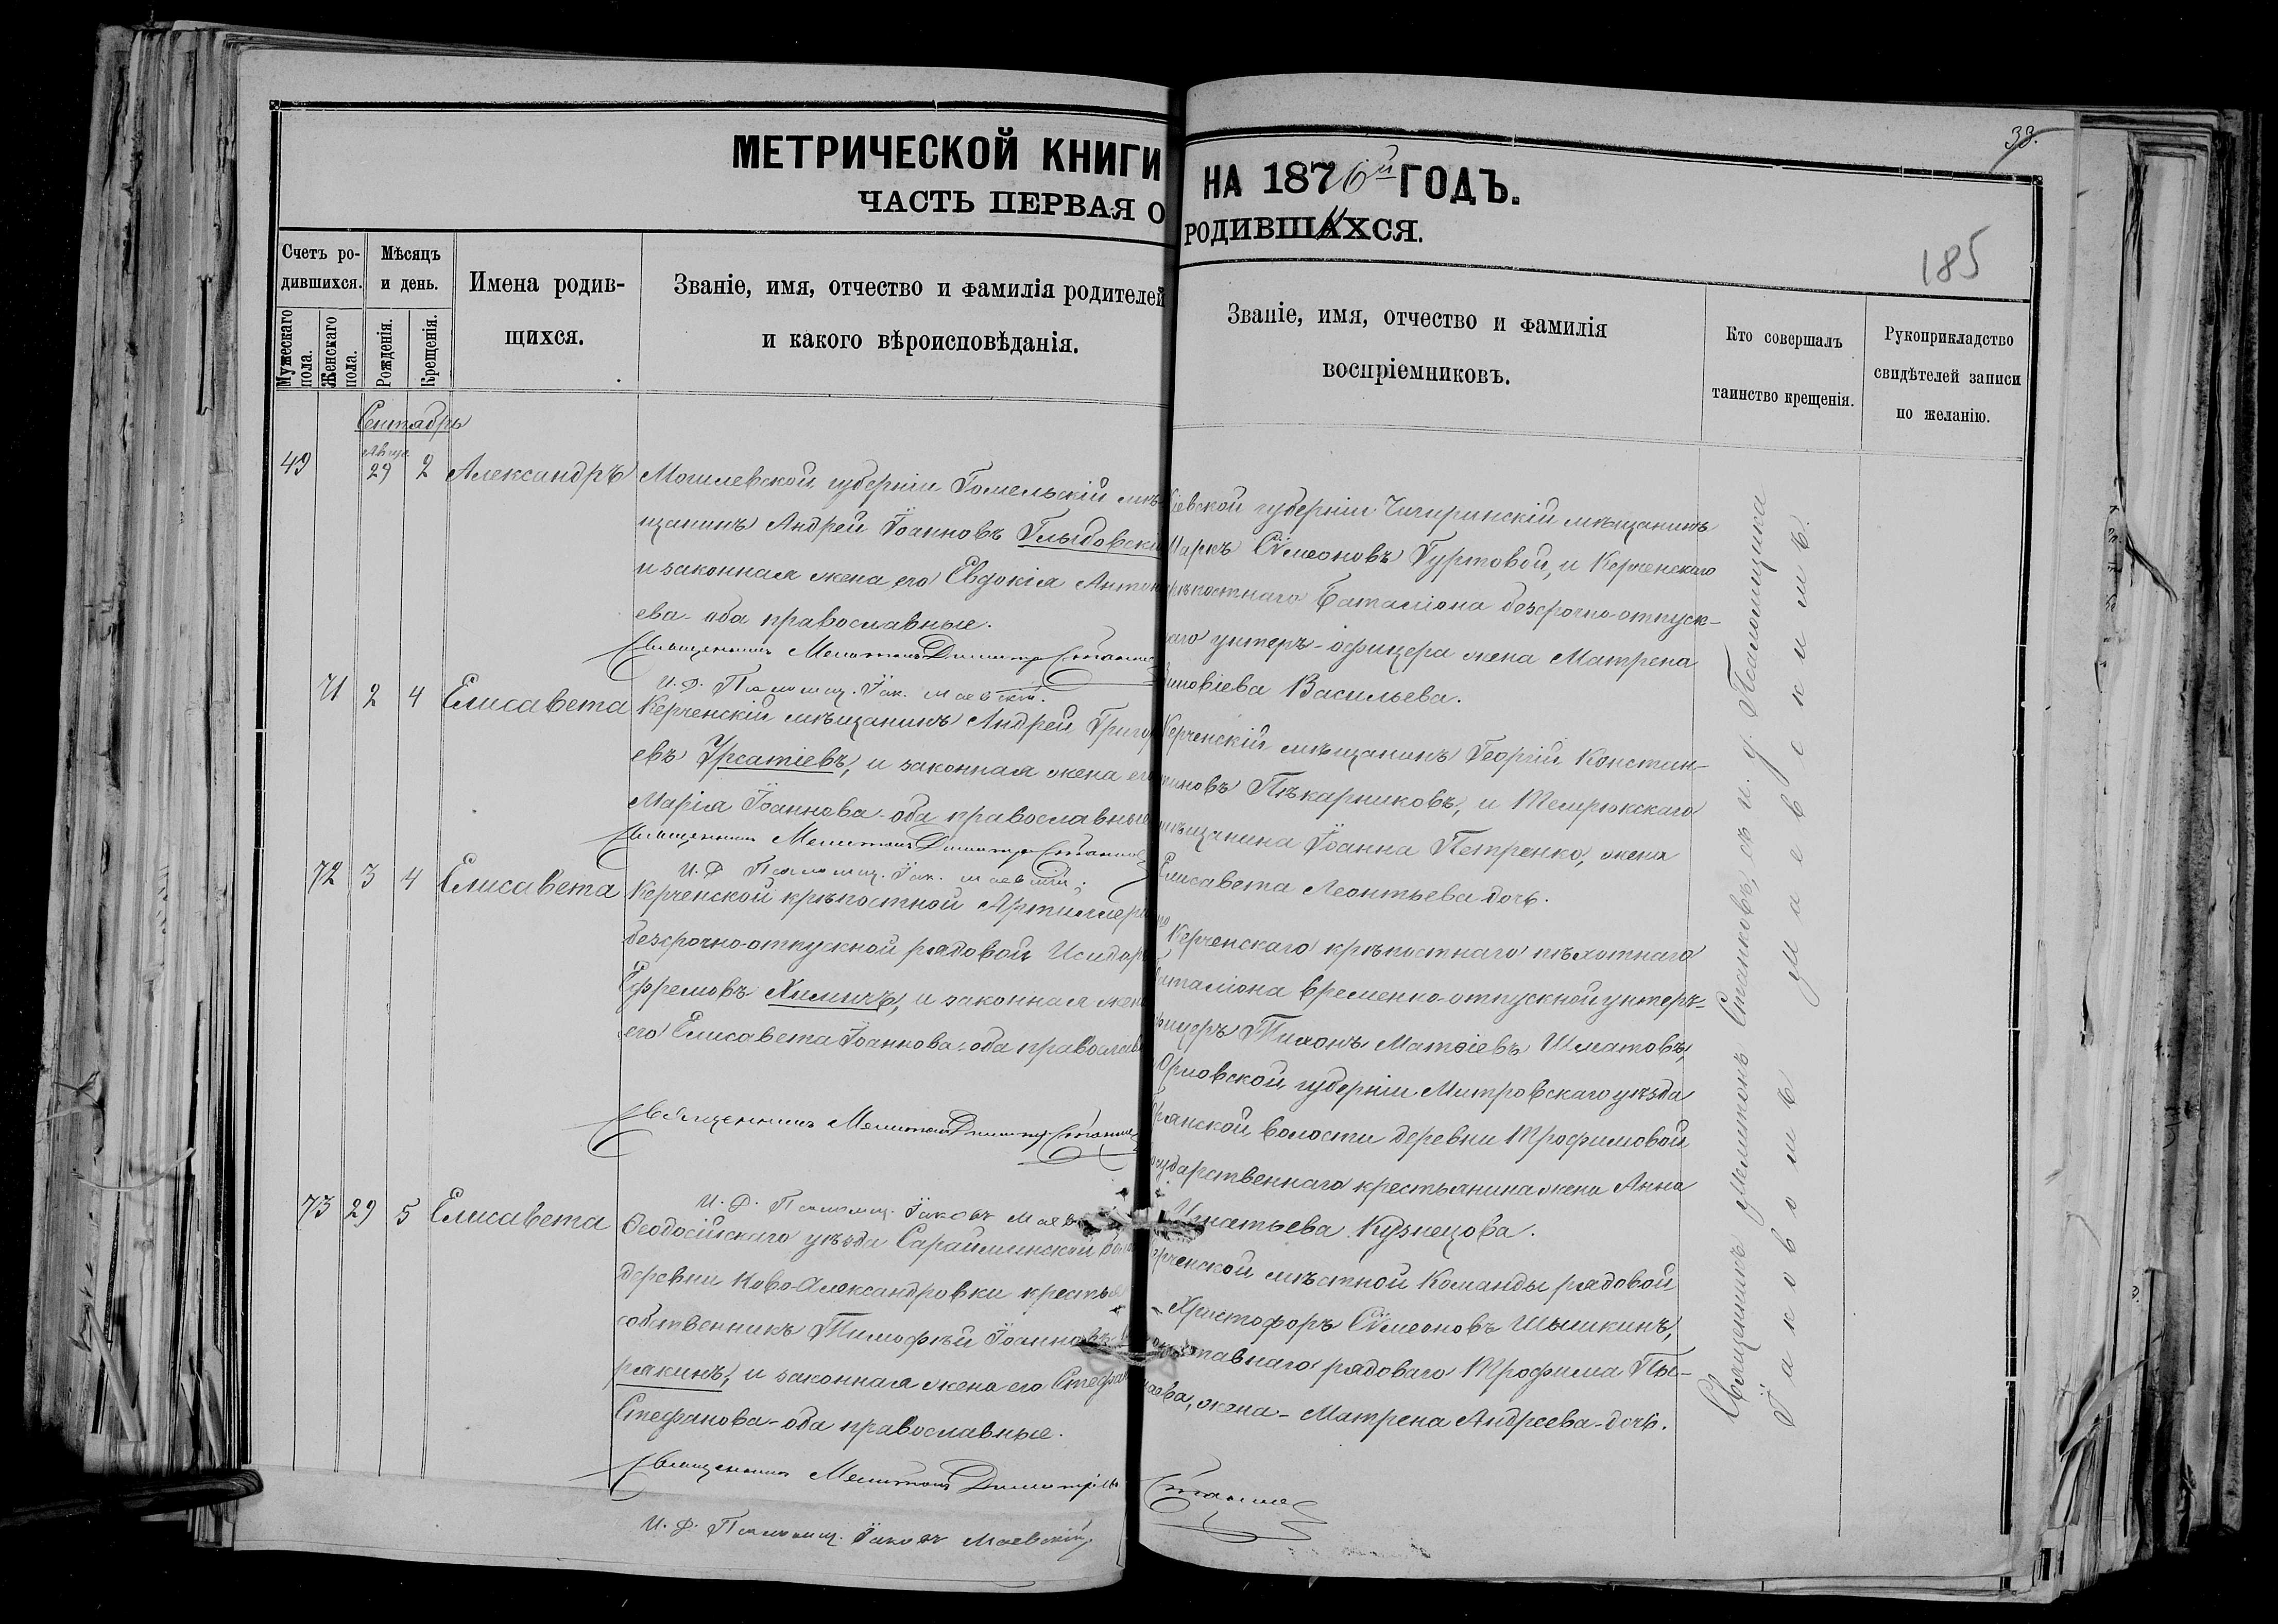 38.
МЕТРИЧЕСКОЙ КНИГИ НА 1876й ГОДЪ.
ЧАСТЬ ПЕРВАЯ О РОДИВШИХСЯ.
185
Счетъ ро-
дившихся.
Мужескаго пола.
Женскаго пола.
Мѣсяцъ
и день.
Рожденія.
Крещенія.
Имена родив-
щихся.
Званіе, имя, отчество и фамилія родителей
и какого вѣроисповѣданія.
Званіе, имя, отчество и фамилія
воспріемниковъ.
Кто совершалъ
таинство крещенія.
Рукоприкладство
свидѣтелей записи
по желанію.
Сентябрь
49
Авгус.
29 2 Александръ
Могилевской губерніи Гомельскій мѣ
щанинъ Андрей Іоанновъ
и законная жена его Евдокія Антон
ева - оба православные.
Священникъ Мелитонъ Димитр Станков
И. Д. Псаломщ. Іак. Маевскій.
іевской губерніи Чигиринскій мѣщанинъ
Маркъ Сѵмеоновъ Гуртовой, и Керченскаго
крѣпостнаго Баталіона безсрочно-отпуск-
наго унтеръ-офицера жена Матрена
Зиновіева Васильева.
71 2 4 Елисавета
Керченскій мѣщанинъ Андрей Григор
евъ Урсатіевъ, и законная жена его
Марія Іоаннова - оба православные
Священникъ Мелитонъ Димитр Станков
И. Д. Псаломщ. Іак. Маевскій.
Керченскій мѣщанинъ Георгій Констан-
тиновъ Пѣкарниковъ, и Темрюкскаго
мѣщанина Іоанна Петренко, жена
Елисавета Леонтьева дочь.
72 3 4 Елисавета
Керченской крѣпостной Артиллері
безсрочно-отпускной рядовой Исидор
Ефремовъ Химичъ, и законная жен
его Елисавета Іоаннова - оба православ
Священникъ Мелитонъ Димитр Станков
И. Д. Псаломщ. Іаковъ Маев
Керченскаго крѣпостнаго пѣхотнаго
баталіона временно-отпускной унтеръ-
фицеръ Тихонъ Матѳіевъ Шматовъ,
Орловской губерніи Митровскаго уѣзда
рянской волости деревни Трофимовой
государственнаго крестьянина жена Анна
Игнатьева Кузнецова.
73 29 5 Елисавета
Ѳеодосійскаго уѣзда Сарайминской во
деревни Ново-Александровки крестья
собственникъ Тимофѣй Іоанновъ
рякинъ, и законная жена его Стефан
Стефанова - оба православные.
Священникъ Мелитонъ Димитріевъ Станков
И. Д. Псаломщ. Іаковъ Маевскій.
ерченской мѣстной Команды рядовой
Христофоръ Сѵмеоновъ Шышкинъ,
отставнаго рядоваго Трофима Пы-
лаева, жена - Матрена Андреева - дочь.
Священникъ Мелитонъ Станковъ, съ и. д. Псаломщика
Іаковомъ Маевскимъ.